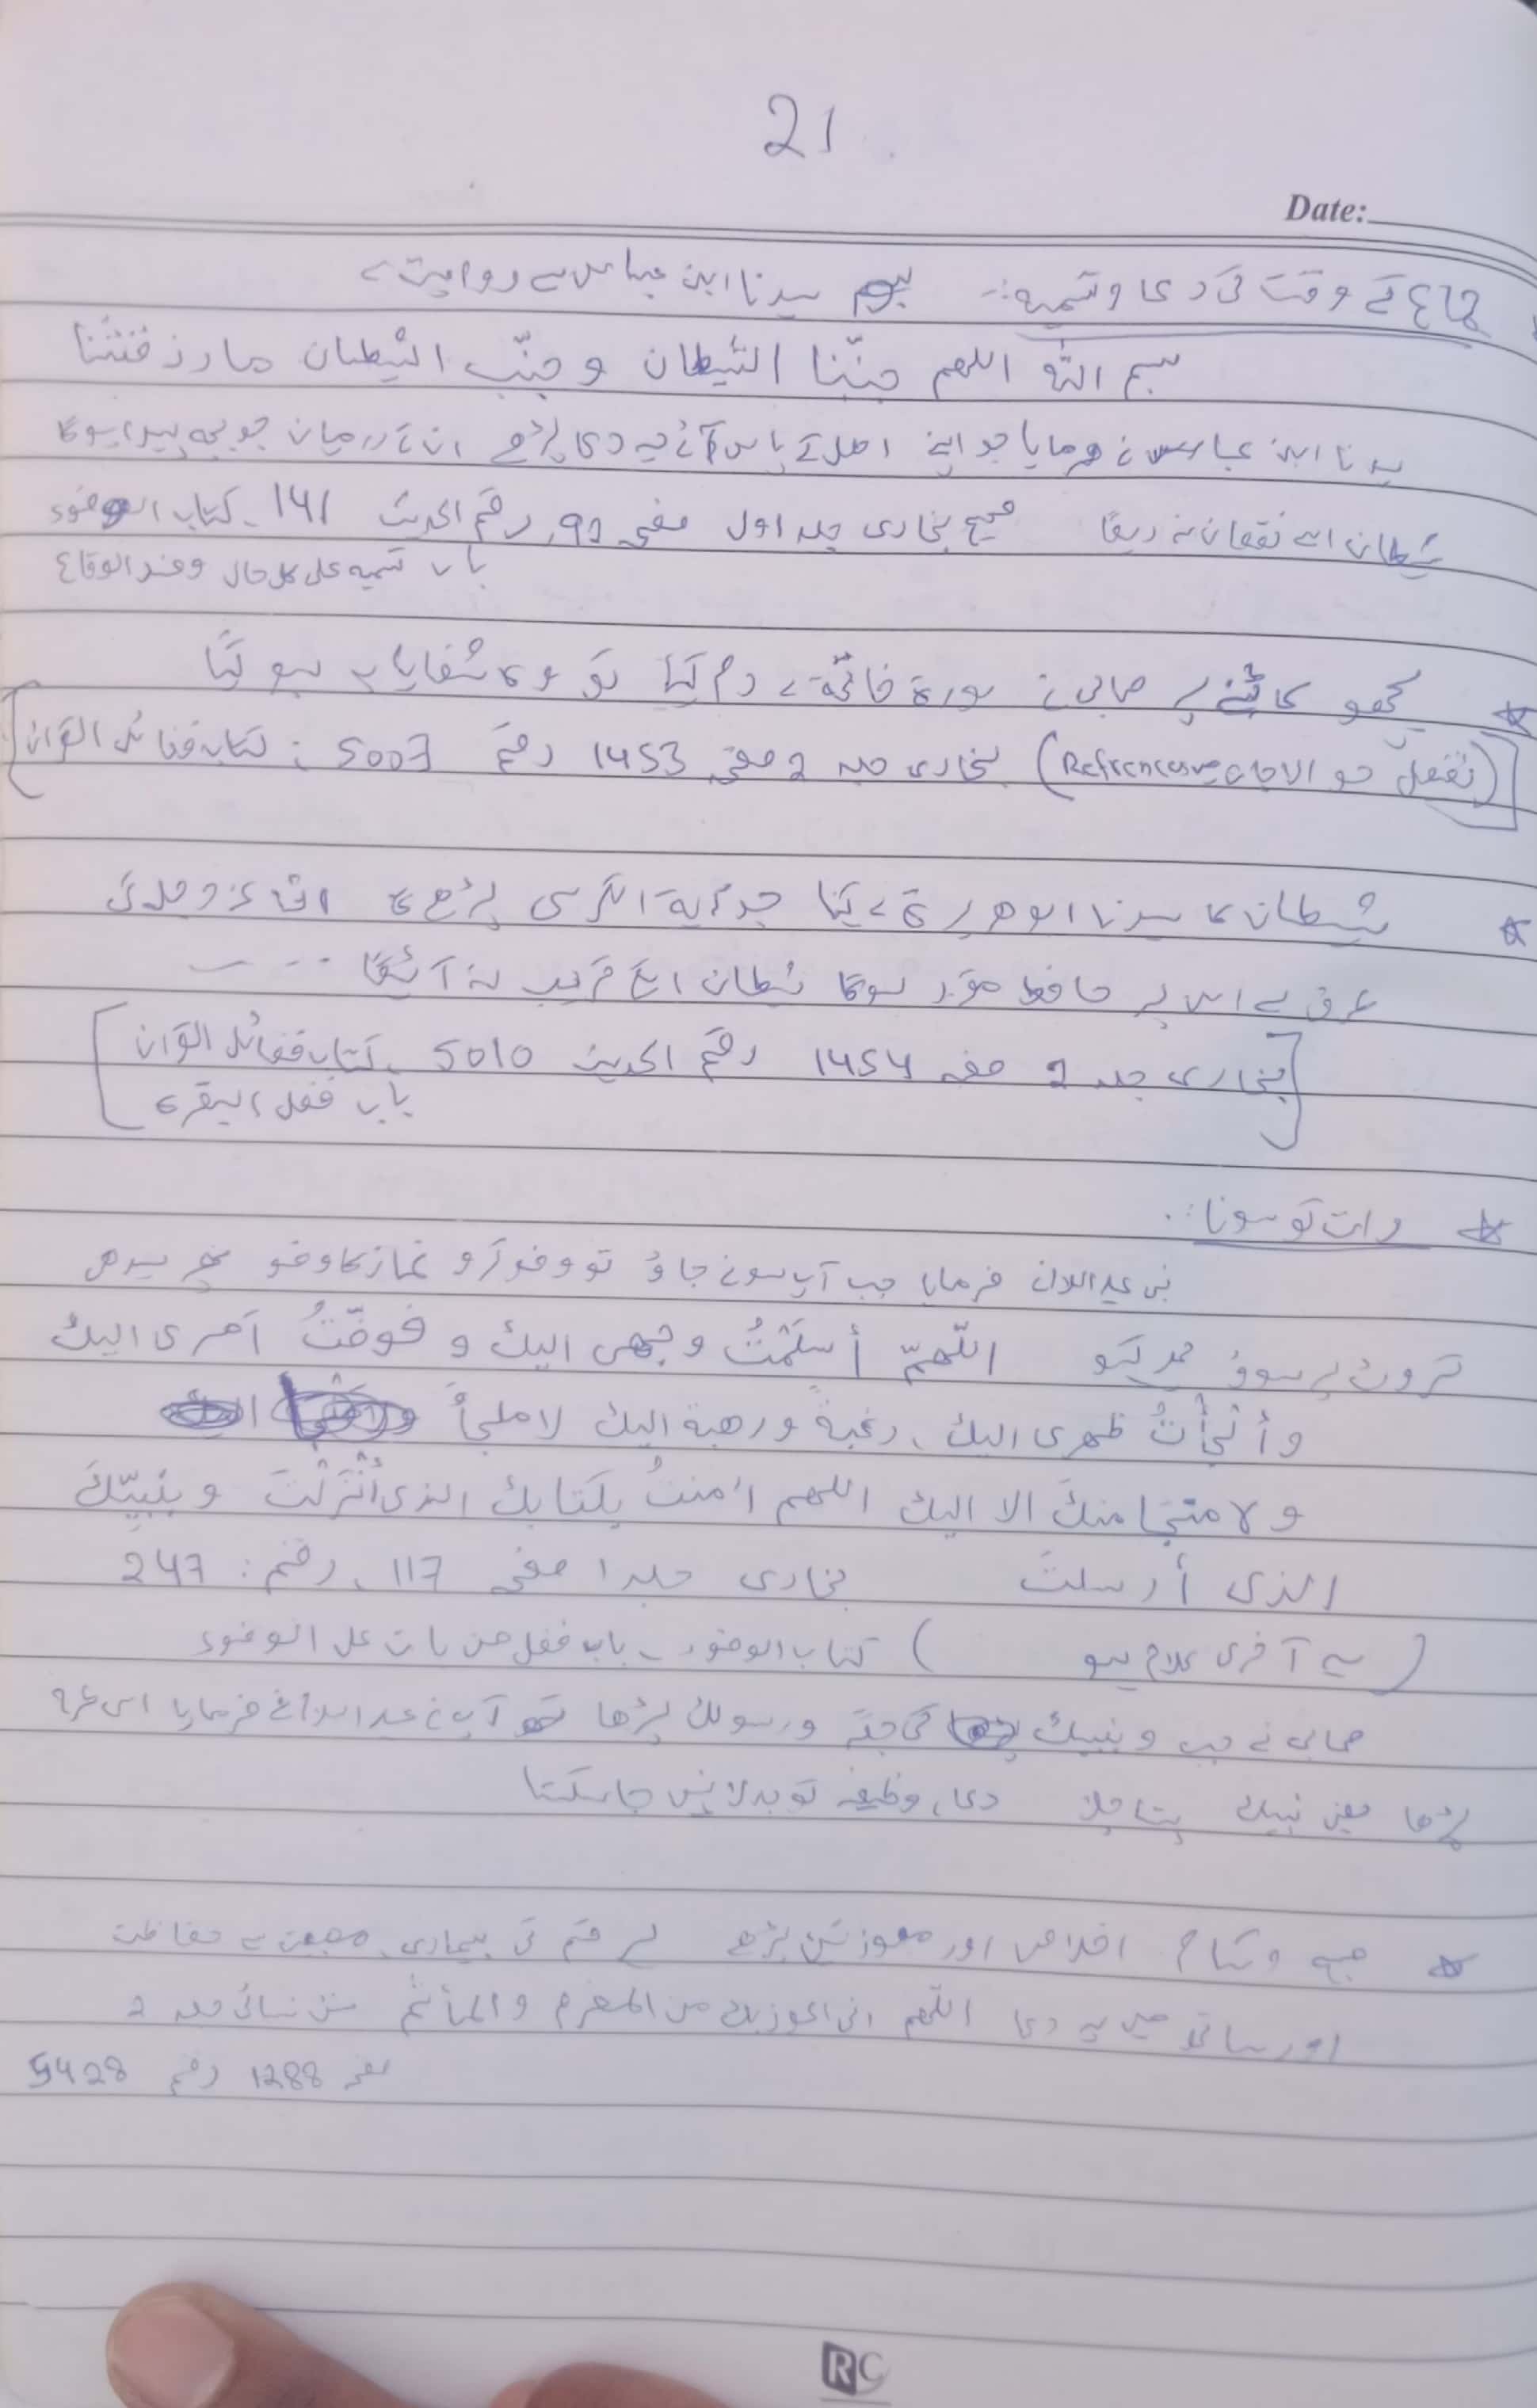 21
Date:
جماع کے وقت کی دعا و تسمیہ:- سیدنا ابن عباس سے روایت ہے
بسم اللہ اللھم جنّبنا الشیطان و جنّب الشیطان ما رزقتنا
سیدنا ابن عباس نے فرمایا جو اپنے اھل کے پاس آئے یہ دعا پڑھے ان کے درمیان جو بچہ پیدا ہوگا
شیطان اسے نقصان نہ دیگا صحیح بخاری جلد اول صفحہ 92، رقم الحدیث 141 - کتاب الوضوء
باب تسمیہ علی کل حال وعند الوقاع
☆ بچھو کاٹنے پر صحابی نے سورۃ فاتحہ سے دم کیا تو وہ شفایاب ہو گیا
[( حوالاجات Refrences) بخاری جلد 2 صفحہ 1453 رقم 5007 : کتاب فضائل القرآن]
☆ شیطان کا سیدنا ابوھریرۃ سے کہنا جو آیۃ الکرسی پڑھے گا اللہ عزوجل کی
طرف سے اس پر حافظ مقرر ہوگا شیطان اسکے قریب نہ آئیگا ...
[بخاری جلد 2 صفحہ 1454 رقم الحدیث 5010 - کتاب فضائل القرآن
باب فضل البقرہ]
☆ رات کو سونا:.
نبی علیہ السلام نے فرمایا جب آپ سونے جاؤ تو وضو کرو نماز کا وضو پھر سیدھی
کروٹ پر سوؤ پھر کہو اللّھمّ أسلَمْتُ وجھی الیك و فوضّتُ أمری الیك
وألجأتُ ظھری الیك، رغبةً و رھبة الیك لا ملجأ
و لا منجا منك الا الیك اللھم اٰمنتُ بکتابك الذی أنْزَلْتَ و بنبیّكَ
الذی أرسلتَ بخاری جلد 1 صفحہ 117، رقم: 247
(یہ آخری کلام ہو ) کتاب الوضوء - باب فضل من بات علی الوضوء
صحابی نے جب و بنبیك کی جگہ و رسولك پڑھا تو آپ علیہ السلام نے فرمایا اس طرح
پڑھا پتا چلا دعا، وظیفہ کو بدلا نہیں جا سکتا
☆ صبح و شام اخلاص اور معوذتین پڑھے ہر قسم کی بیماری، مصیبت سے حفاظت
اور ساتھ میں یہ دعا اللّھم انی اعوذ بك من المغرم والمأثم سنن نسائی جلد 2
صفحہ 1288 رقم 5428
RC